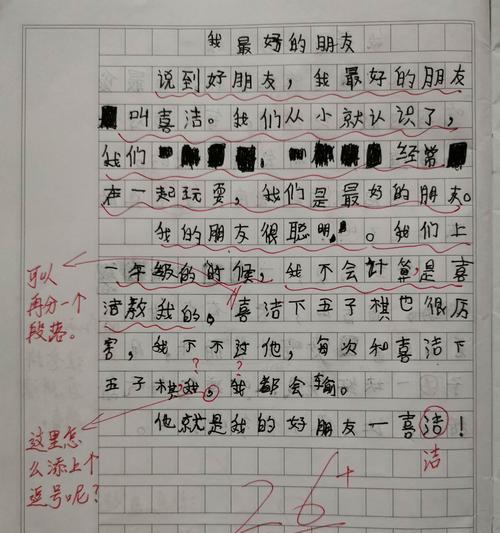 我最好的朋友
说到好朋友，我最好的朋友
叫喜洁。我们从小就认识了，
我们，经常
在一起玩耍，我们是最好的朋友。
我的朋友很聪明。我们上
一年级的时候，我不会计算，是喜
洁教我的。喜洁下五子棋也很厉
害，我下不过他，每次和喜洁下
? ?
五子棋我，我都会输。
他就是我的好朋友一喜洁！
洁
可以
再分一个
段落。
这里怎
么添上个
逗号呢？
26+